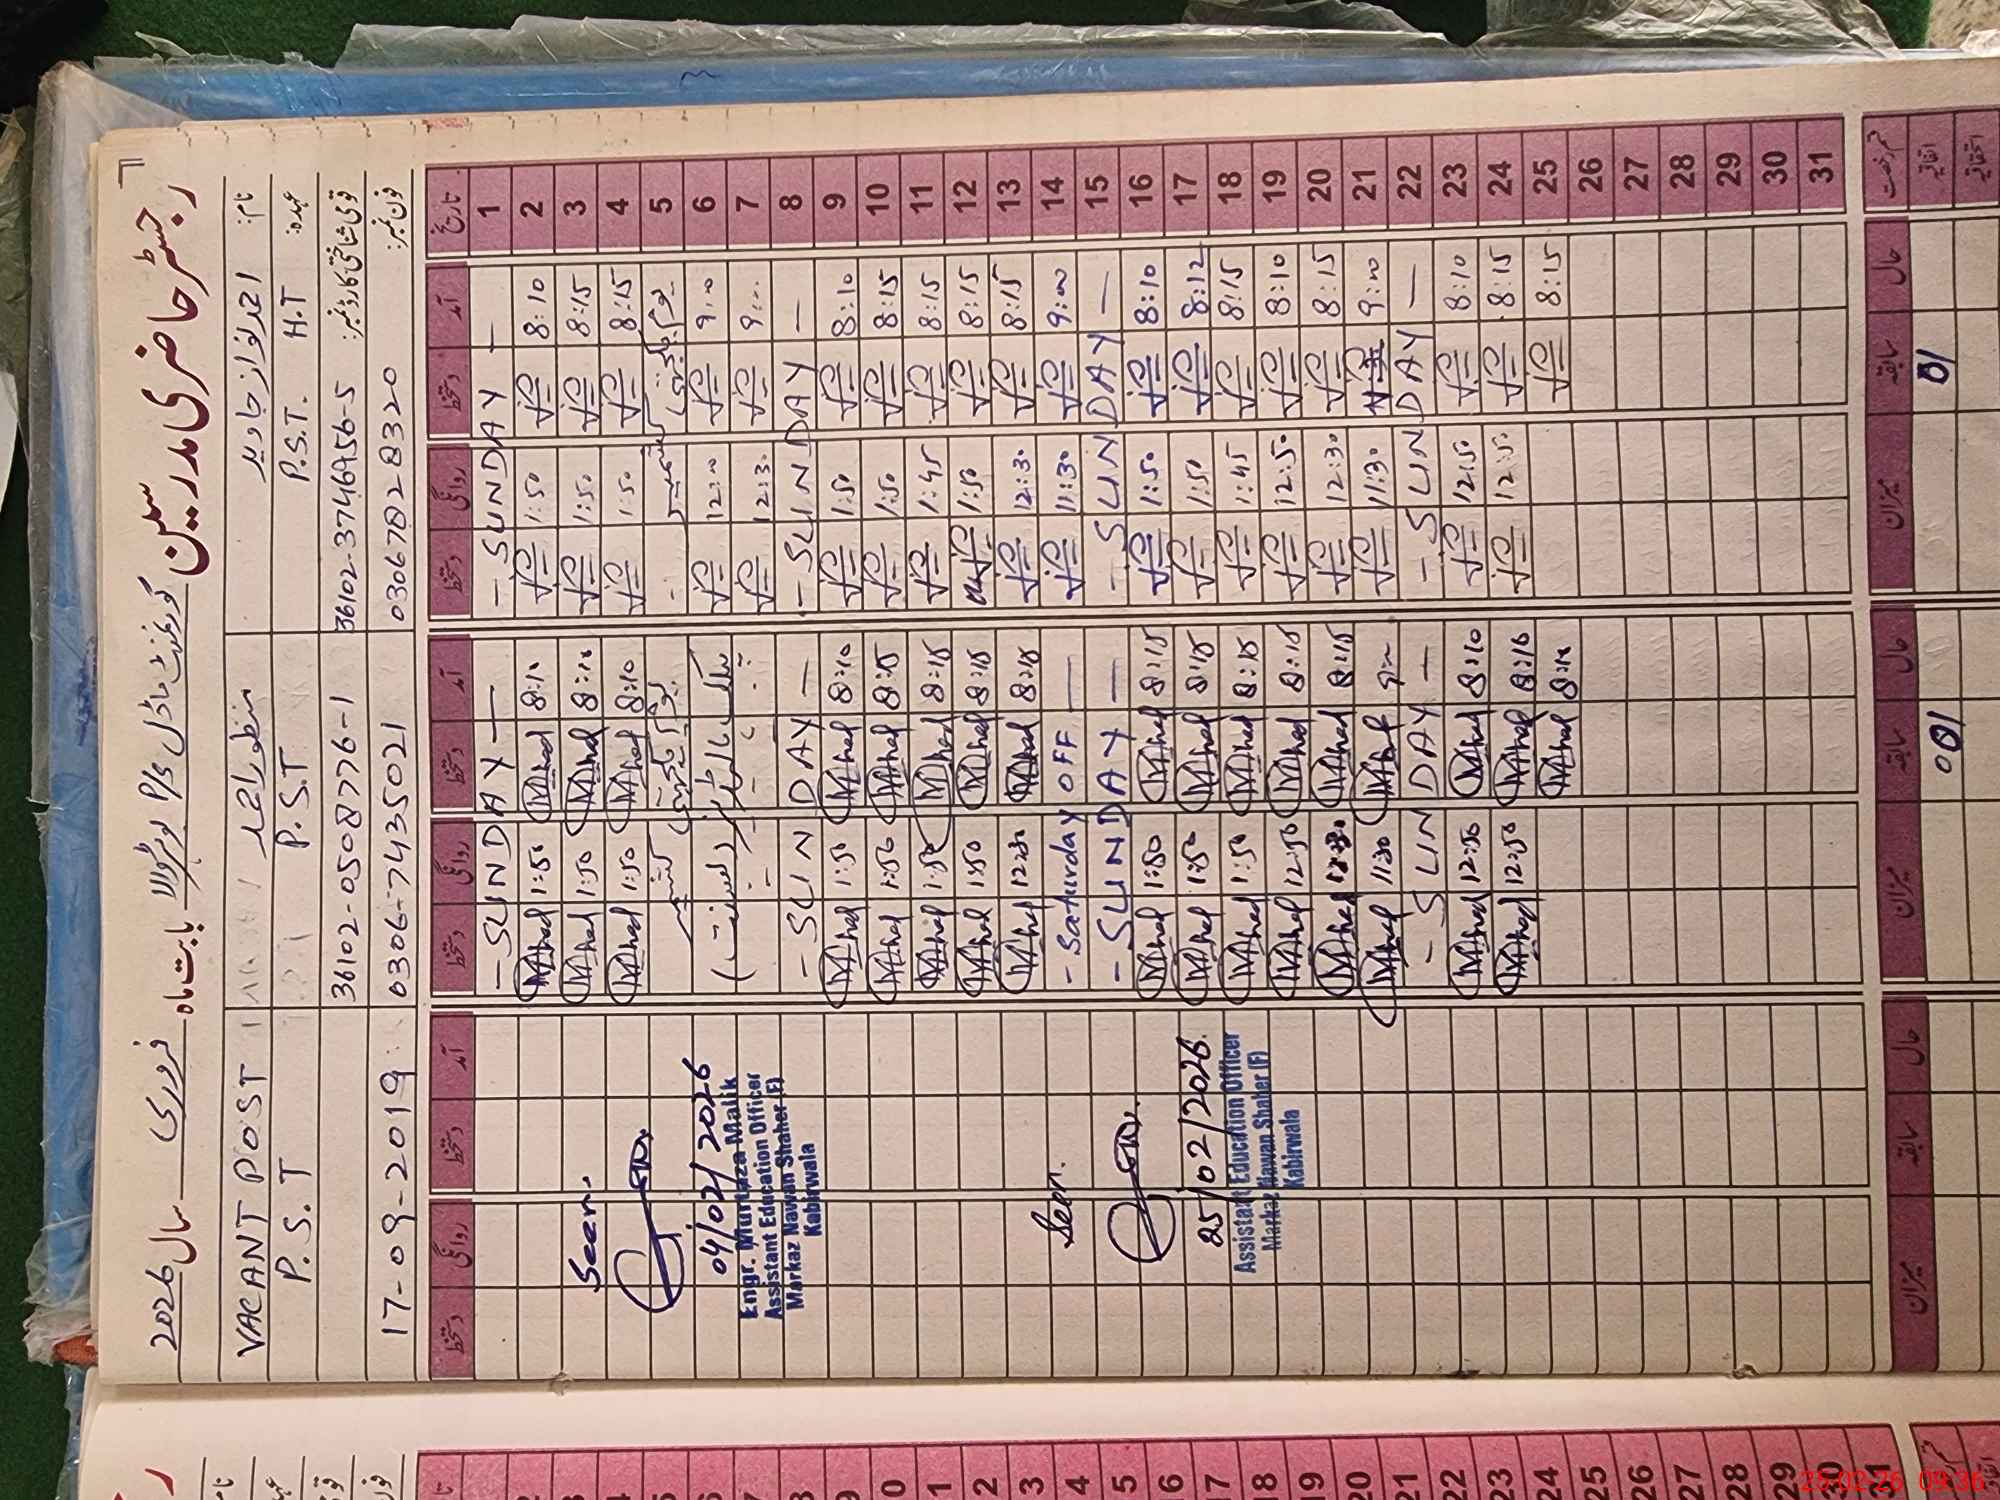 رجسٹر حاضری مدرسین
گورنمنٹ ماڈل P/S
بابت ماہ فروری سال 2026
نام: احمد نواز جاوید
منظور احمد
VACANT POST
عہدہ: P.S.T. H.T
P.S.T
P.S.T
قومی شناختی کارڈ نمبر: 36102-3746956-5
36102-0508776-1
فون نمبر: 03067828320
0306-7435021
17-09-2019
تاریخ آمد دستخط روانگی دستخط آمد دستخط روانگی دستخط آمد دستخط روانگی دستخط
1 — SUNDAY — — SUNDAY —
2 8:10 1:50 8:10 1:50
3 8:15 1:50 8:10 1:50
4 8:15 1:50 8:10 1:50
5 یوم یکجہتی کشمیر یوم یکجہتی کشمیر
6 9:00 12:00
7 9:00 12:30
8 — SUNDAY — — SUNDAY —
9 8:10 1:50 8:10 1:50
10 8:15 1:50 8:15 1:50
11 8:15 1:45 8:15 1:50
12 8:15 1:50 8:15 1:50
13 8:15 12:30 8:15 12:30
14 9:00 11:30 — Saturday OFF —
15 — SUNDAY — — SUNDAY —
16 8:10 1:50 8:15 1:50
17 8:12 1:50 8:15 1:50
18 8:15 1:45 8:15 1:50
19 8:10 12:50 8:15 12:50
20 8:15 12:30 8:15 12:30
21 9:00 11:30 9:00 11:30
22 — SUNDAY — — SUNDAY —
23 8:10 12:50 8:10 12:50
24 8:15 12:50 8:10 12:50
25 8:15 8:10
26
27
28
29
30
31
Seen.
04/02/2026
Engr. Murtaza Malik
Assistant Education Officer
Markaz Nawan Shaher (F)
Kabirwala
Seen.
25/02/2026.
Assistant Education Officer
Markaz Nawan Shaher (F)
Kabirwala
قسم رخصت حال سابقہ میزان حال سابقہ میزان حال سابقہ میزان
اتفاقیہ 01 001
استحقاقیہ
25-02-26 09:36